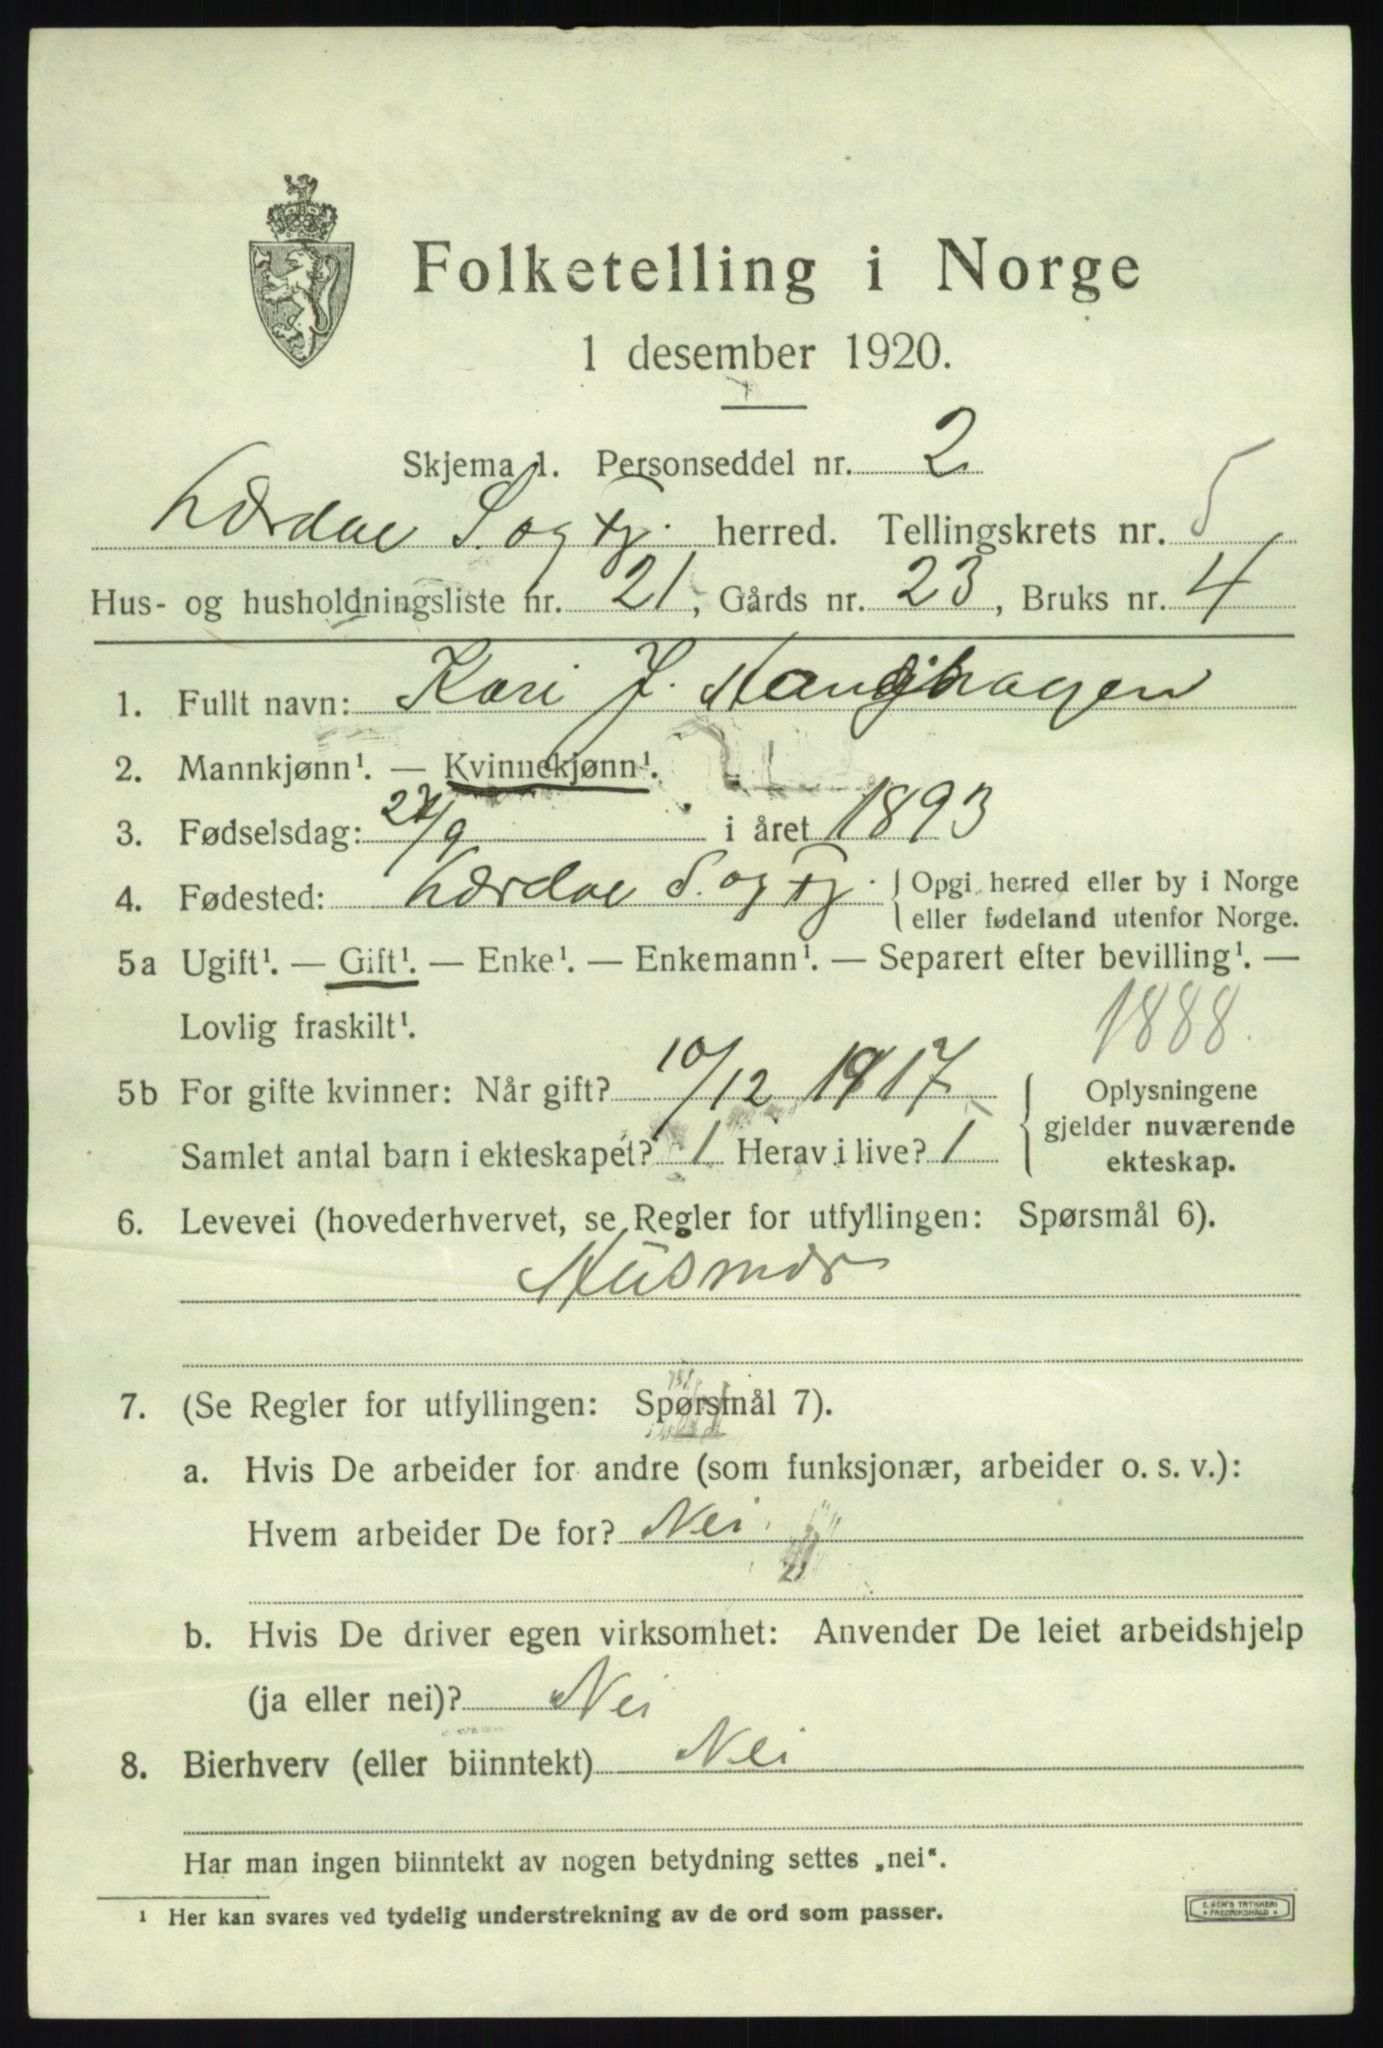 Folketelling i Norge
1 desember 1920.
Skjema 1. Personseddel nr. 2
Lærdal S. og Fj. herred. Tellingskrets nr. 5
Hus- og husholdningsliste nr. 21, Gårds nr. 23, Bruks nr. 4
1. Fullt navn: Kari J.
2. Mannkjønn¹. — Kvinnekjønn¹.
3. Fødselsdag: /9 i året 1893
4. Fødested: Lærdal S. og Fj. Opgi herred eller by i Norge
eller fødeland utenfor Norge.
5a Ugift¹. — Gift¹. — Enke¹. — Enkemann¹. — Separert efter bevilling¹. —
Lovlig fraskilt¹.
1888.
5b For gifte kvinner: Når gift? 10/12 1917
Samlet antal barn i ekteskapet? 1 Herav i live? 1
Oplysningene
gjelder nuværende
ekteskap.
6. Levevei (hovederhvervet, se Regler for utfyllingen: Spørsmål 6).
Husmor
7. (Se Regler for utfyllingen: Spørsmål 7).
a. Hvis De arbeider for andre (som funksjonær, arbeider o. s. v.):
Hvem arbeider De for? Nei
b. Hvis De driver egen virksomhet: Anvender De leiet arbeidshjelp
(ja eller nei)? Nei
8. Bierhverv (eller biinntekt) Nei
Har man ingen biinntekt av nogen betydning settes „nei“.
¹ Her kan svares ved tydelig understrekning av de ord som passer.
E. SEM'S TRYKKERI
FREDRIKSHALD